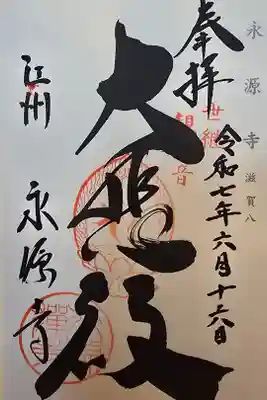 永源寺 滋賀八
奉拝
世継
観音
令和七年六月十六日
大悲殿
江州
永源寺